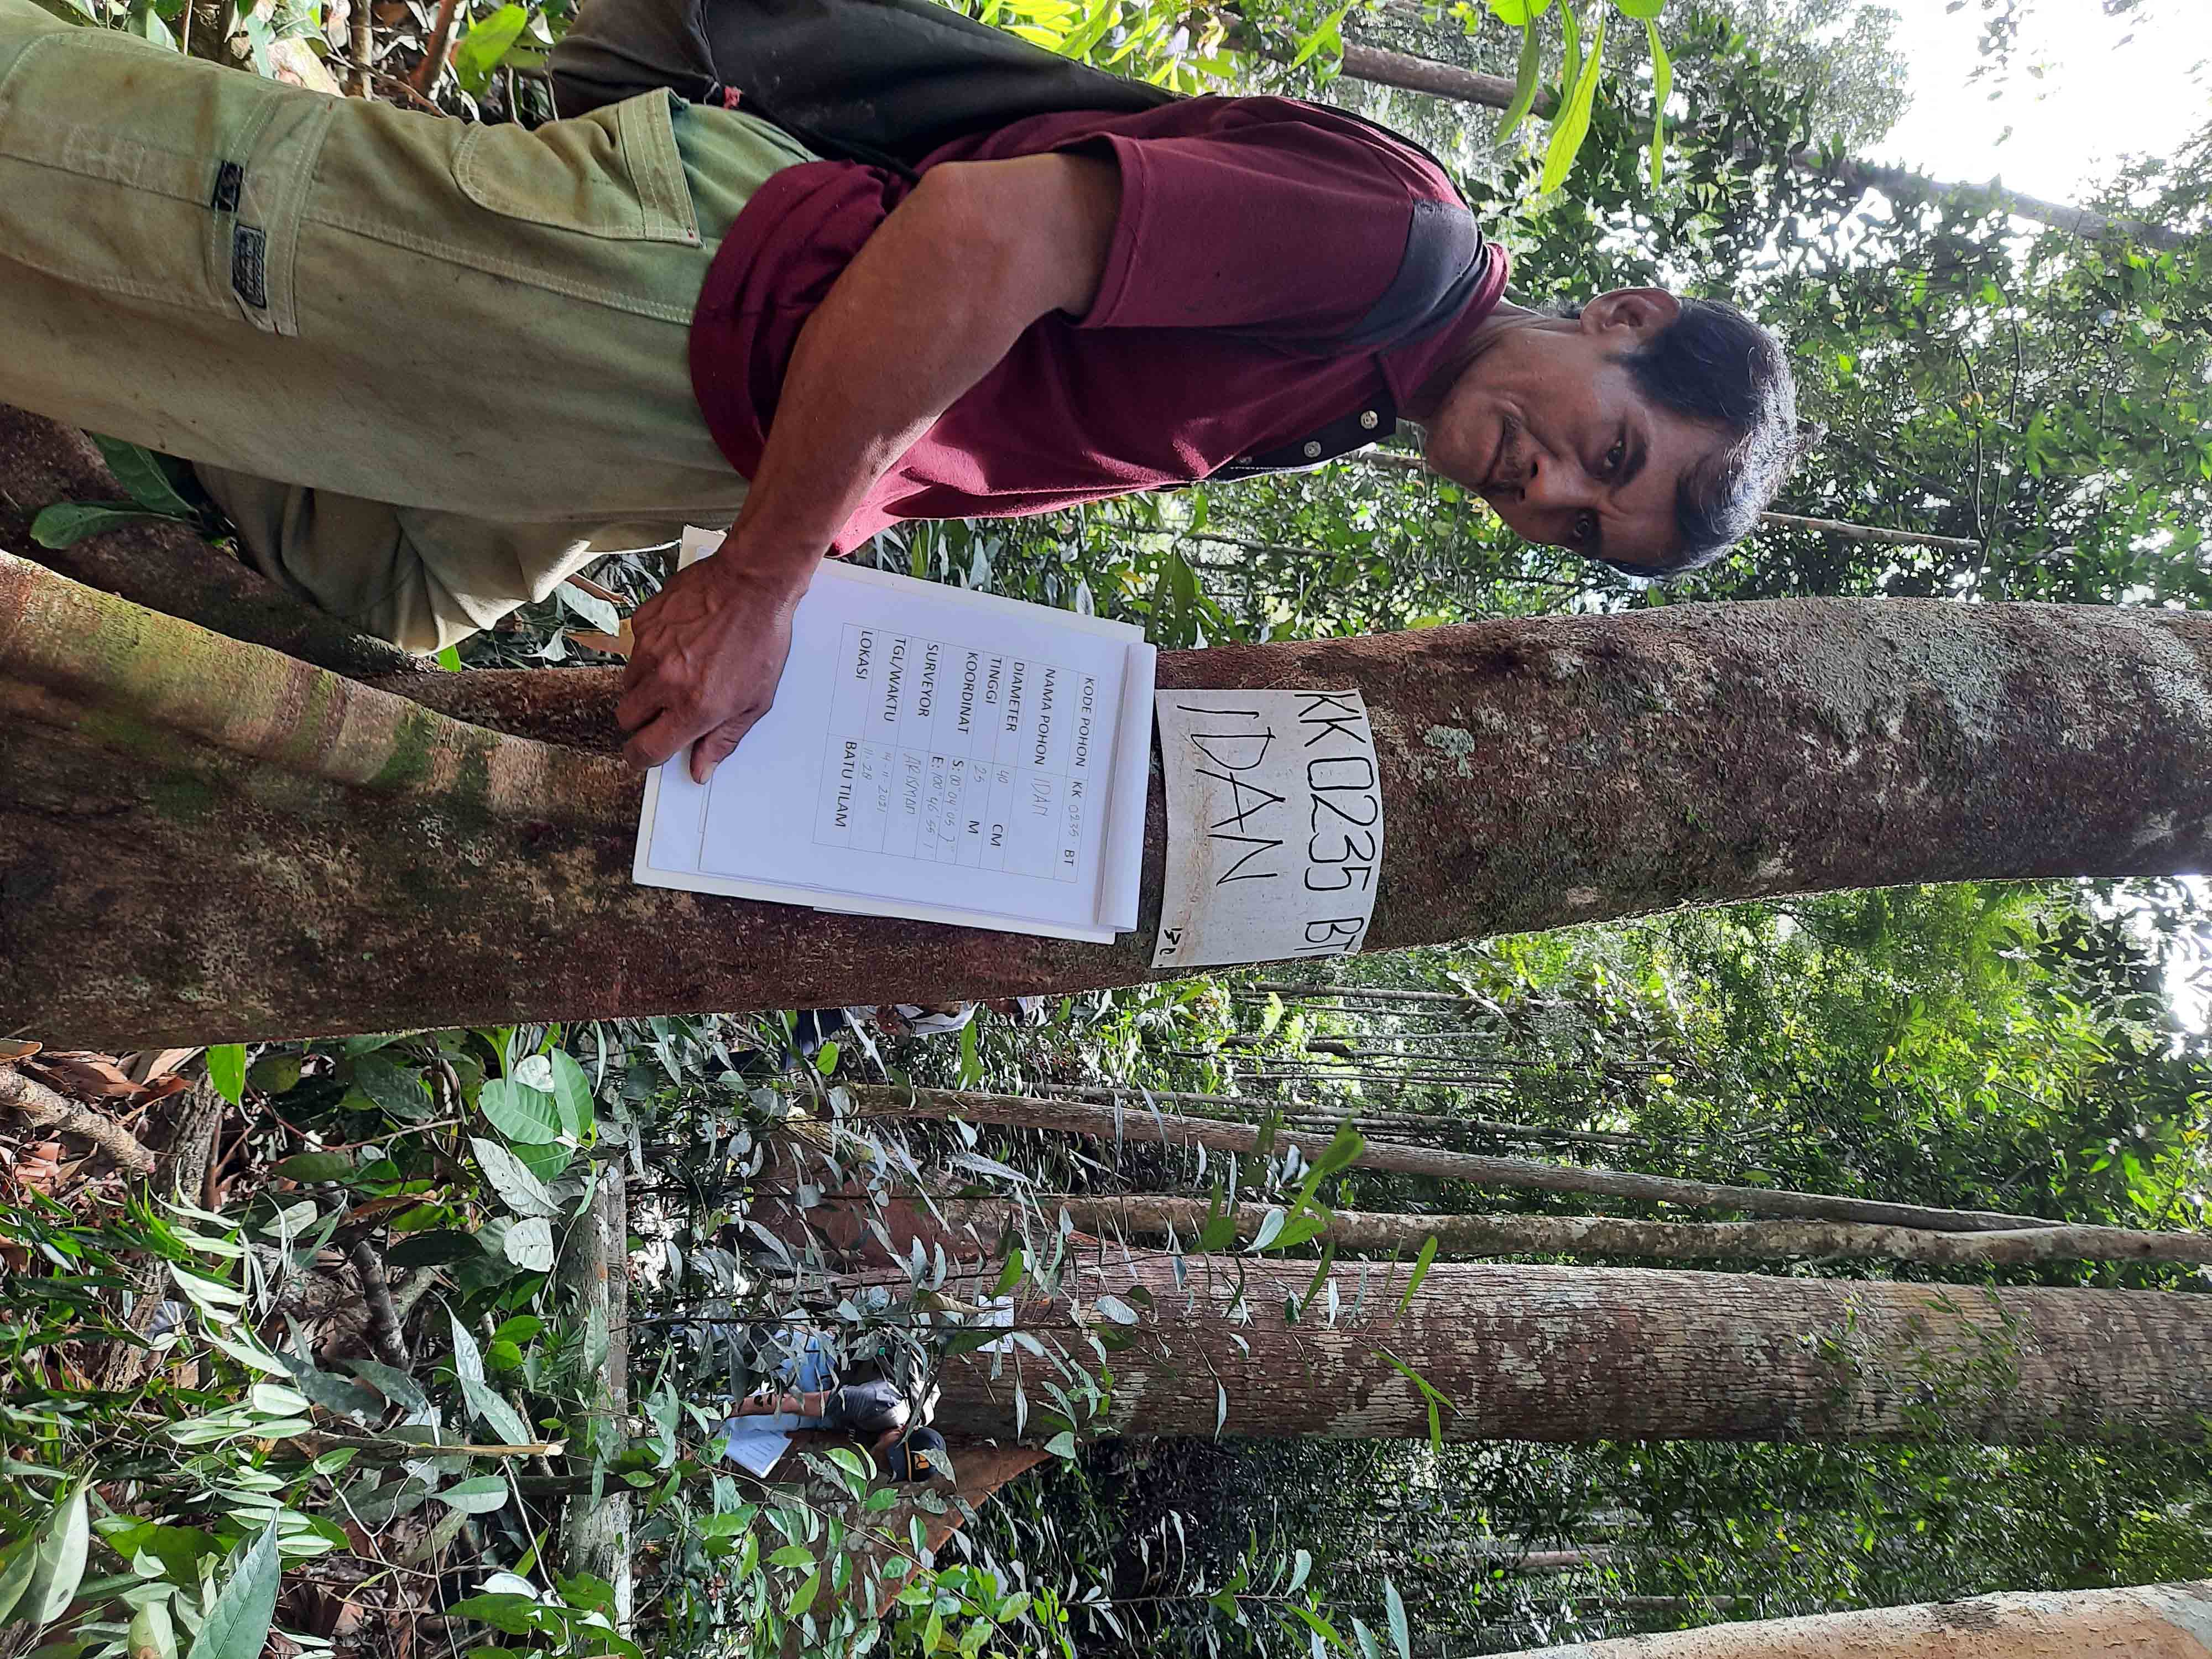 KK 0235 BT
IDAN
KODE POHON KK 0235 BT
NAMA POHON IDAN
DIAMETER 40 CM
TINGGI 25 M
KOORDINAT S: 00° 04' 05
E: 100° 46' 55
SURVEYOR ARISMAN
TGL/WAKTU 14-11-2021
11.28
LOKASI BATU TILAM